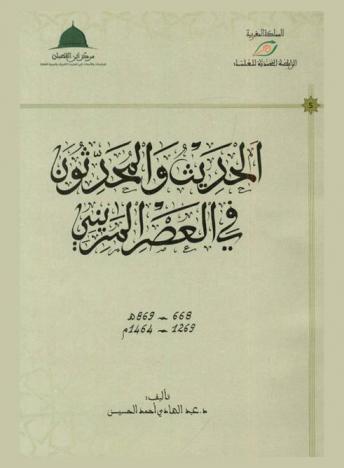 المملكة المغربية
الرابطة المحمدية للعلماء
مركز ابن القطان
5
الحديث والمحدثون
في العصر المريني
668 - 869هـ
1269 - 1464م
تأليف:
د. عبد الهادي أحمد الحسيسن